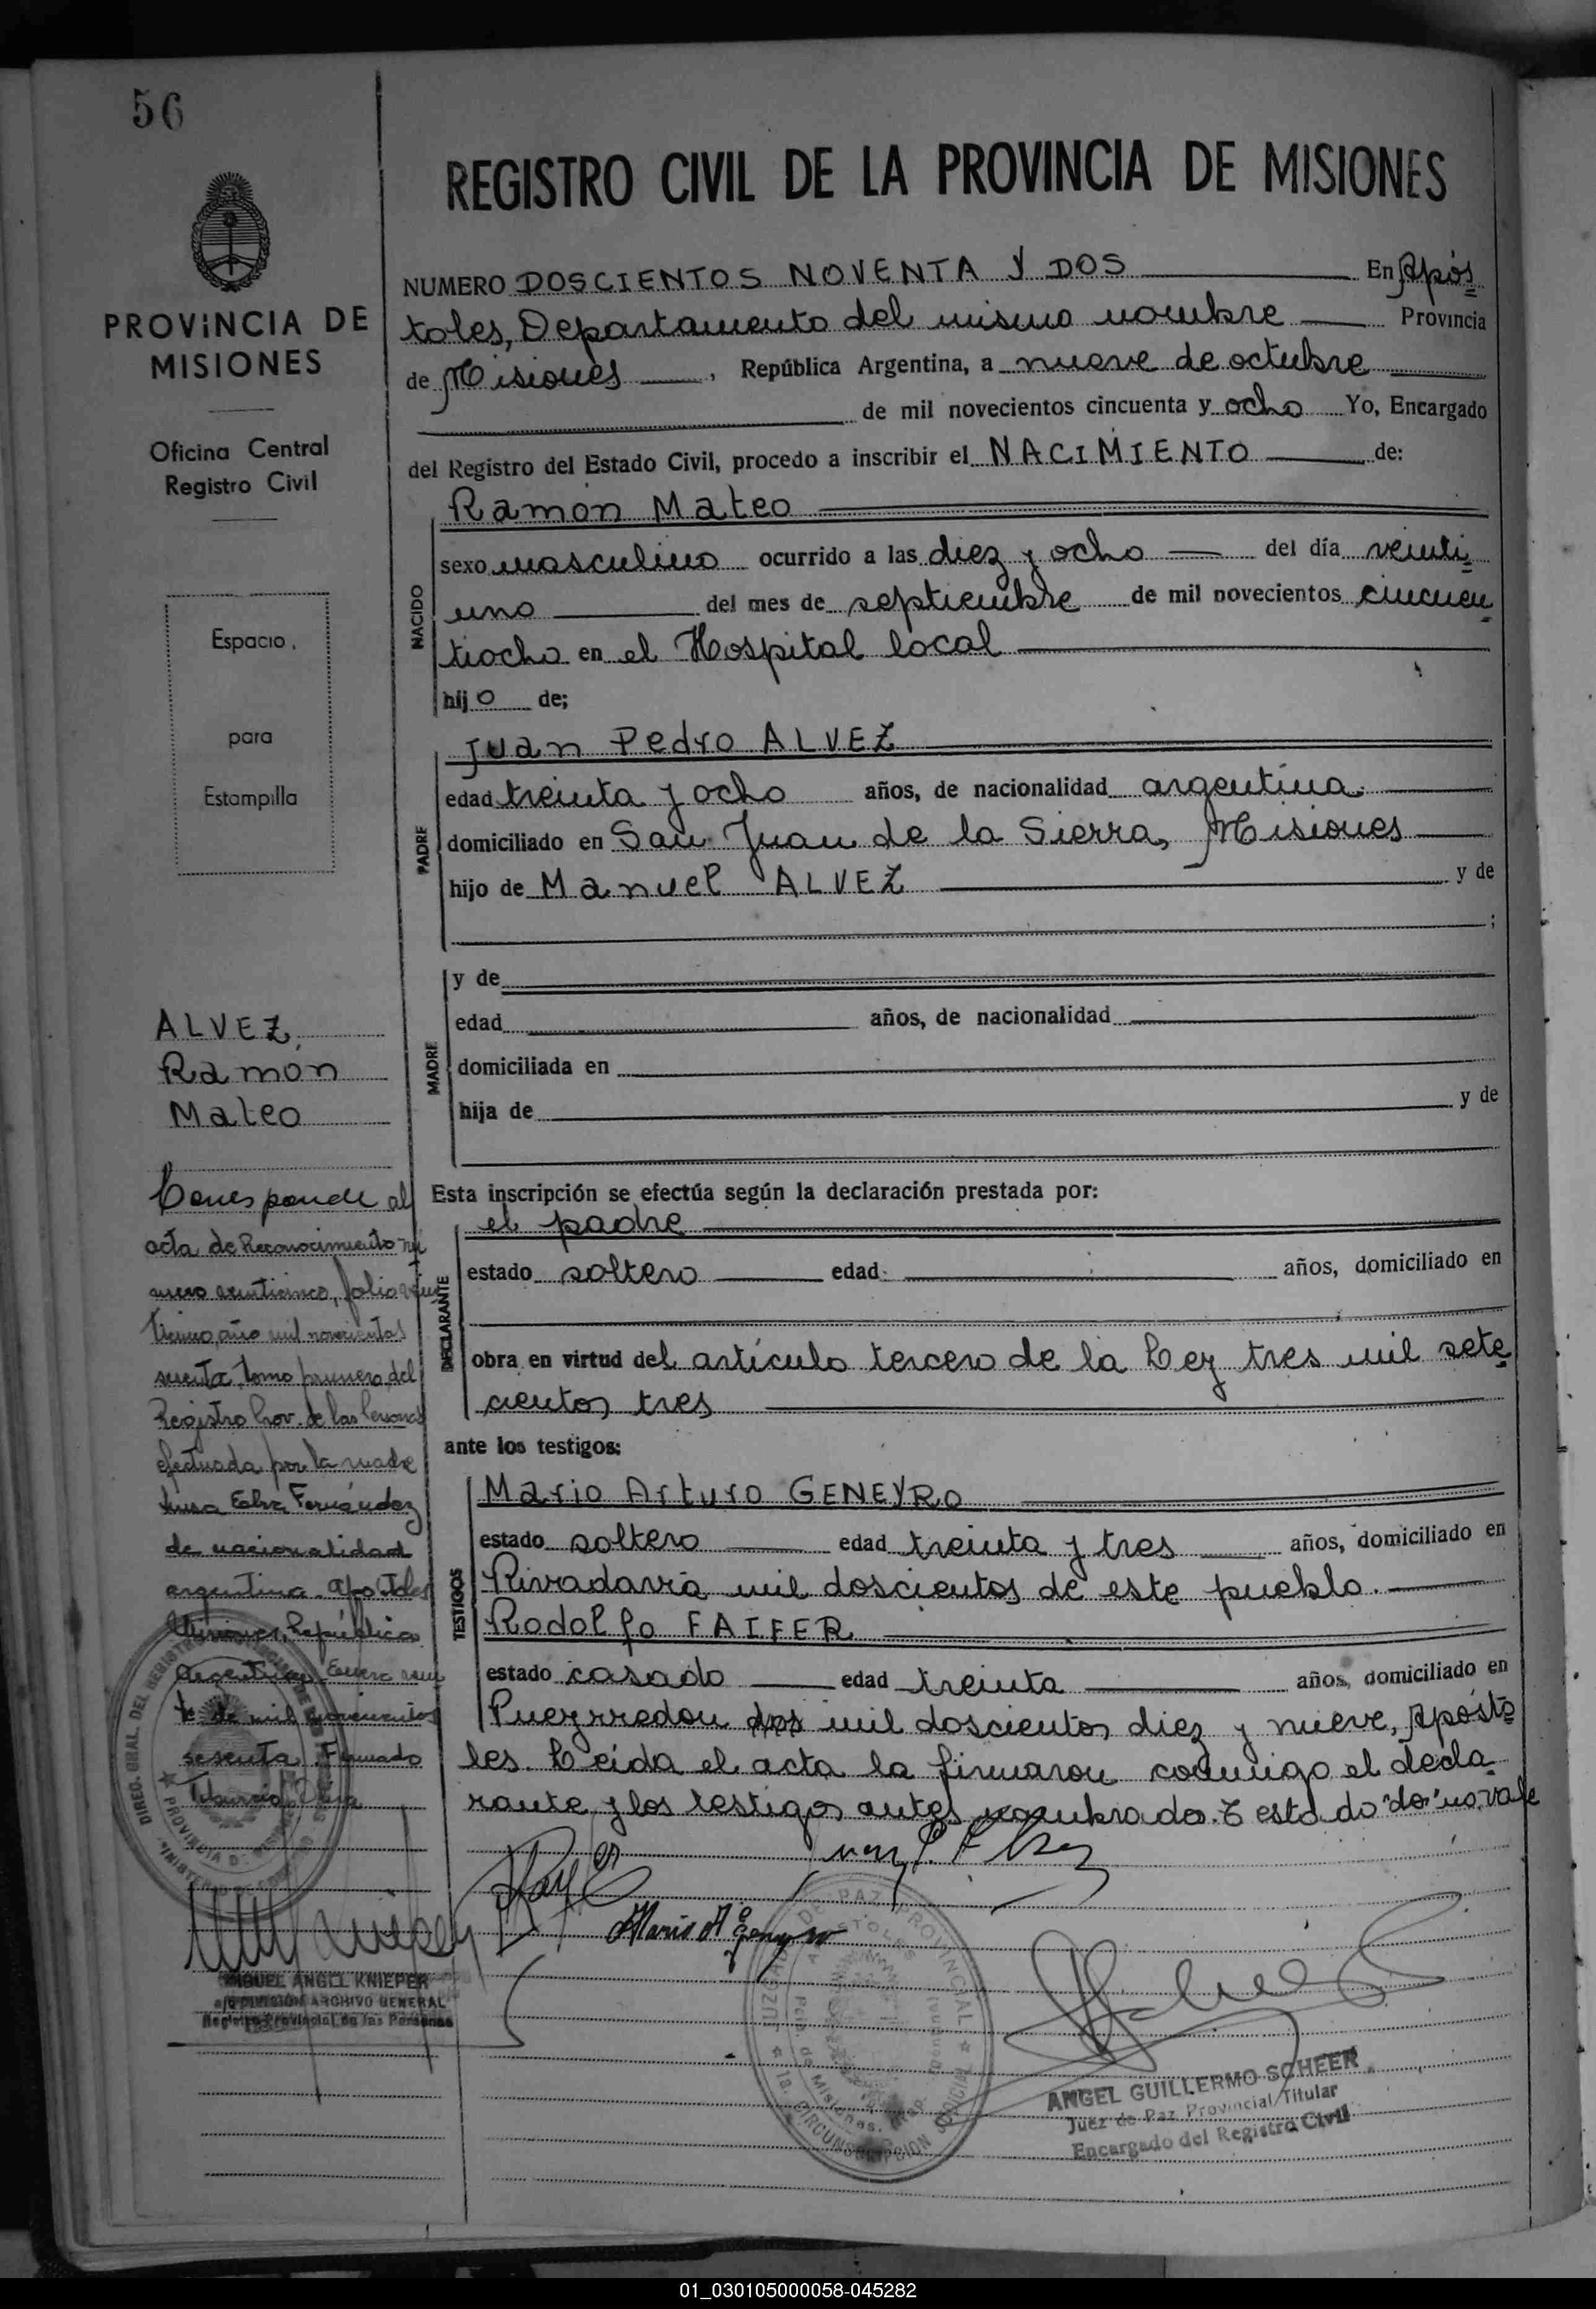 56
REGISTRO CIVIL DE LA PROVINCIA DE MISIONES
PROVINCIA DE
MISIONES
Oficina Central
Registro Civil
Espacio
para
Estampilla
NUMERO DOSCIENTOS NOVENTA Y DOS En Após
toles, Departamento del mismo nombre Provincia
de Misiones, República Argentina, a nueve de octubre
de mil novecientos cincuenta y ocho Yo, Encargado
del Registro del Estado Civil, procedo a inscribir el NACIMIENTO de:
NACIDO
Ramón Mateo
sexo masculino ocurrido a las diez y ocho del día veinti
uno del mes de septiembre de mil novecientos cincuen
tiocho en el Hospital local
hijo de;
PADRE
Juan Pedro ALVEZ
edad treinta y ocho años, de nacionalidad argentina.
domiciliado en San Juan de la Sierra, Misiones
hijo de Manuel ALVEZ y de
;
MADRE
y de
edad años, de nacionalidad
domiciliada en
hija de y de
Esta inscripción se efectúa según la declaración prestada por:
DECLARANTE
el padre
estado soltero edad años, domiciliado en
obra en virtud del artículo tercero de la Ley tres mil sete
cientos tres
ante los testigos:
TESTIGOS
Mario Arturo GENEYRO
estado soltero edad treinta y tres años, domiciliado en
Rivadavia mil doscientos de este pueblo.
Rodolfo FAIFER
estado casado edad treinta años, domiciliado en
Pueyrredon dos mil doscientos diez y nueve, Aposto
les. Leída el acta la firmaron conmigo el decla
rante y los testigos antes nombrado. Testado "dos" no vale
ALVEZ,
Ramón
Mateo
Corresponde al
acta de Reconocimiento nú
mero veinticinco, folio vein
ticinco, año mil novecientos
sesenta, tomo primero del
Registro Prov. de las Personas
efectuada por la madre
Luisa Elva Fernández
de nacionalidad
argentina. Apostoles
Misiones, República
Argentina, Enero vein
te de mil novecientos
sesenta Firmado
Mario A Geneyro
MIGUEL ANGEL KNIEPER
a/c DIVISION ARCHIVO GENERAL
Registro Provincial de las Personas
JUZGADO DE PAZ PROVINCIAL
APOSTOLES
Pcia. de Misiones. Rep. Argentina
1a. CIRCUNSCRIPCION JUDICIAL
ANGEL GUILLERMO SCHEER
Juez de Paz Provincial Titular
Encargado del Registro Civil
01_030105000058-045282